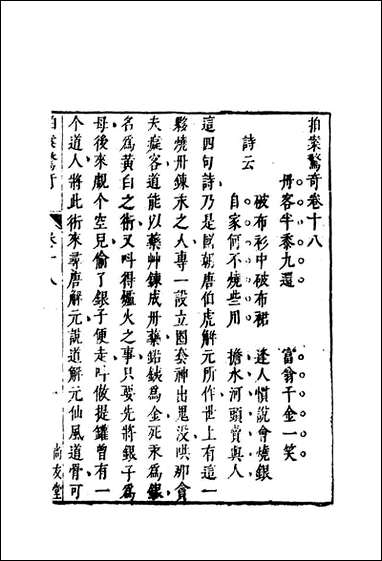 拍案驚奇卷十八
丹客半黍九還　富翁千金一笑
詩云
破布衫中破布裙　逢人慣說會燒銀
自家何不燒些用　擔水河頭賣與人
這四句詩乃是國朝唐伯虎解元所作世上有這一
夥燒丹鍊汞之人專一設立圈套神出鬼沒哄那貪
夫癡客道能以藥草鍊成丹藥鉛鉄為金死汞為銀
名為黃白之術又呌得爐火之事只要先將銀子為
母後來覷个空兒偷了銀子便走呌做提罐曾有一
个道人將此術來尋唐解元說道解元仙風道骨可
拍案驚奇　卷十八　一　尚友堂